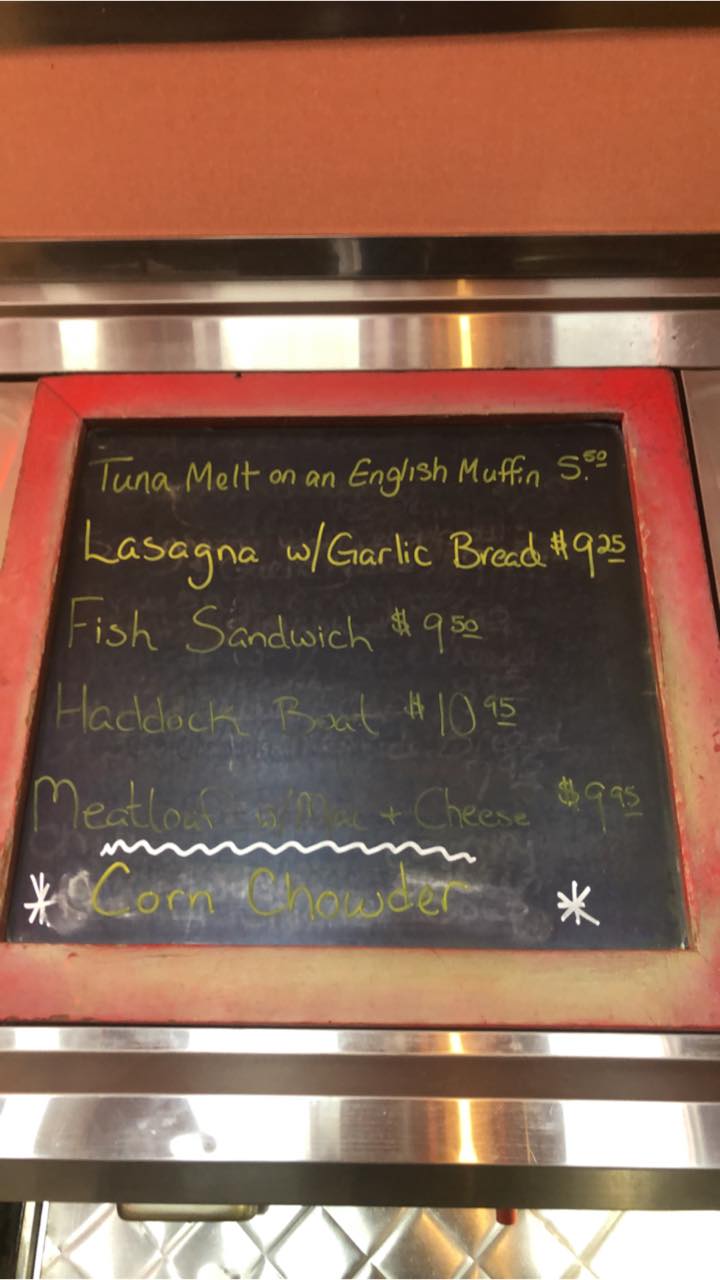 Tuna Melt on an English Muffin 5.50
Lasagna w/Garlic Bread $9 25
Fish Sandwich $9 50
Haddock Boat $10 95
Meatloaf w/Mac + Cheese $9 95
* Corn Chowder *